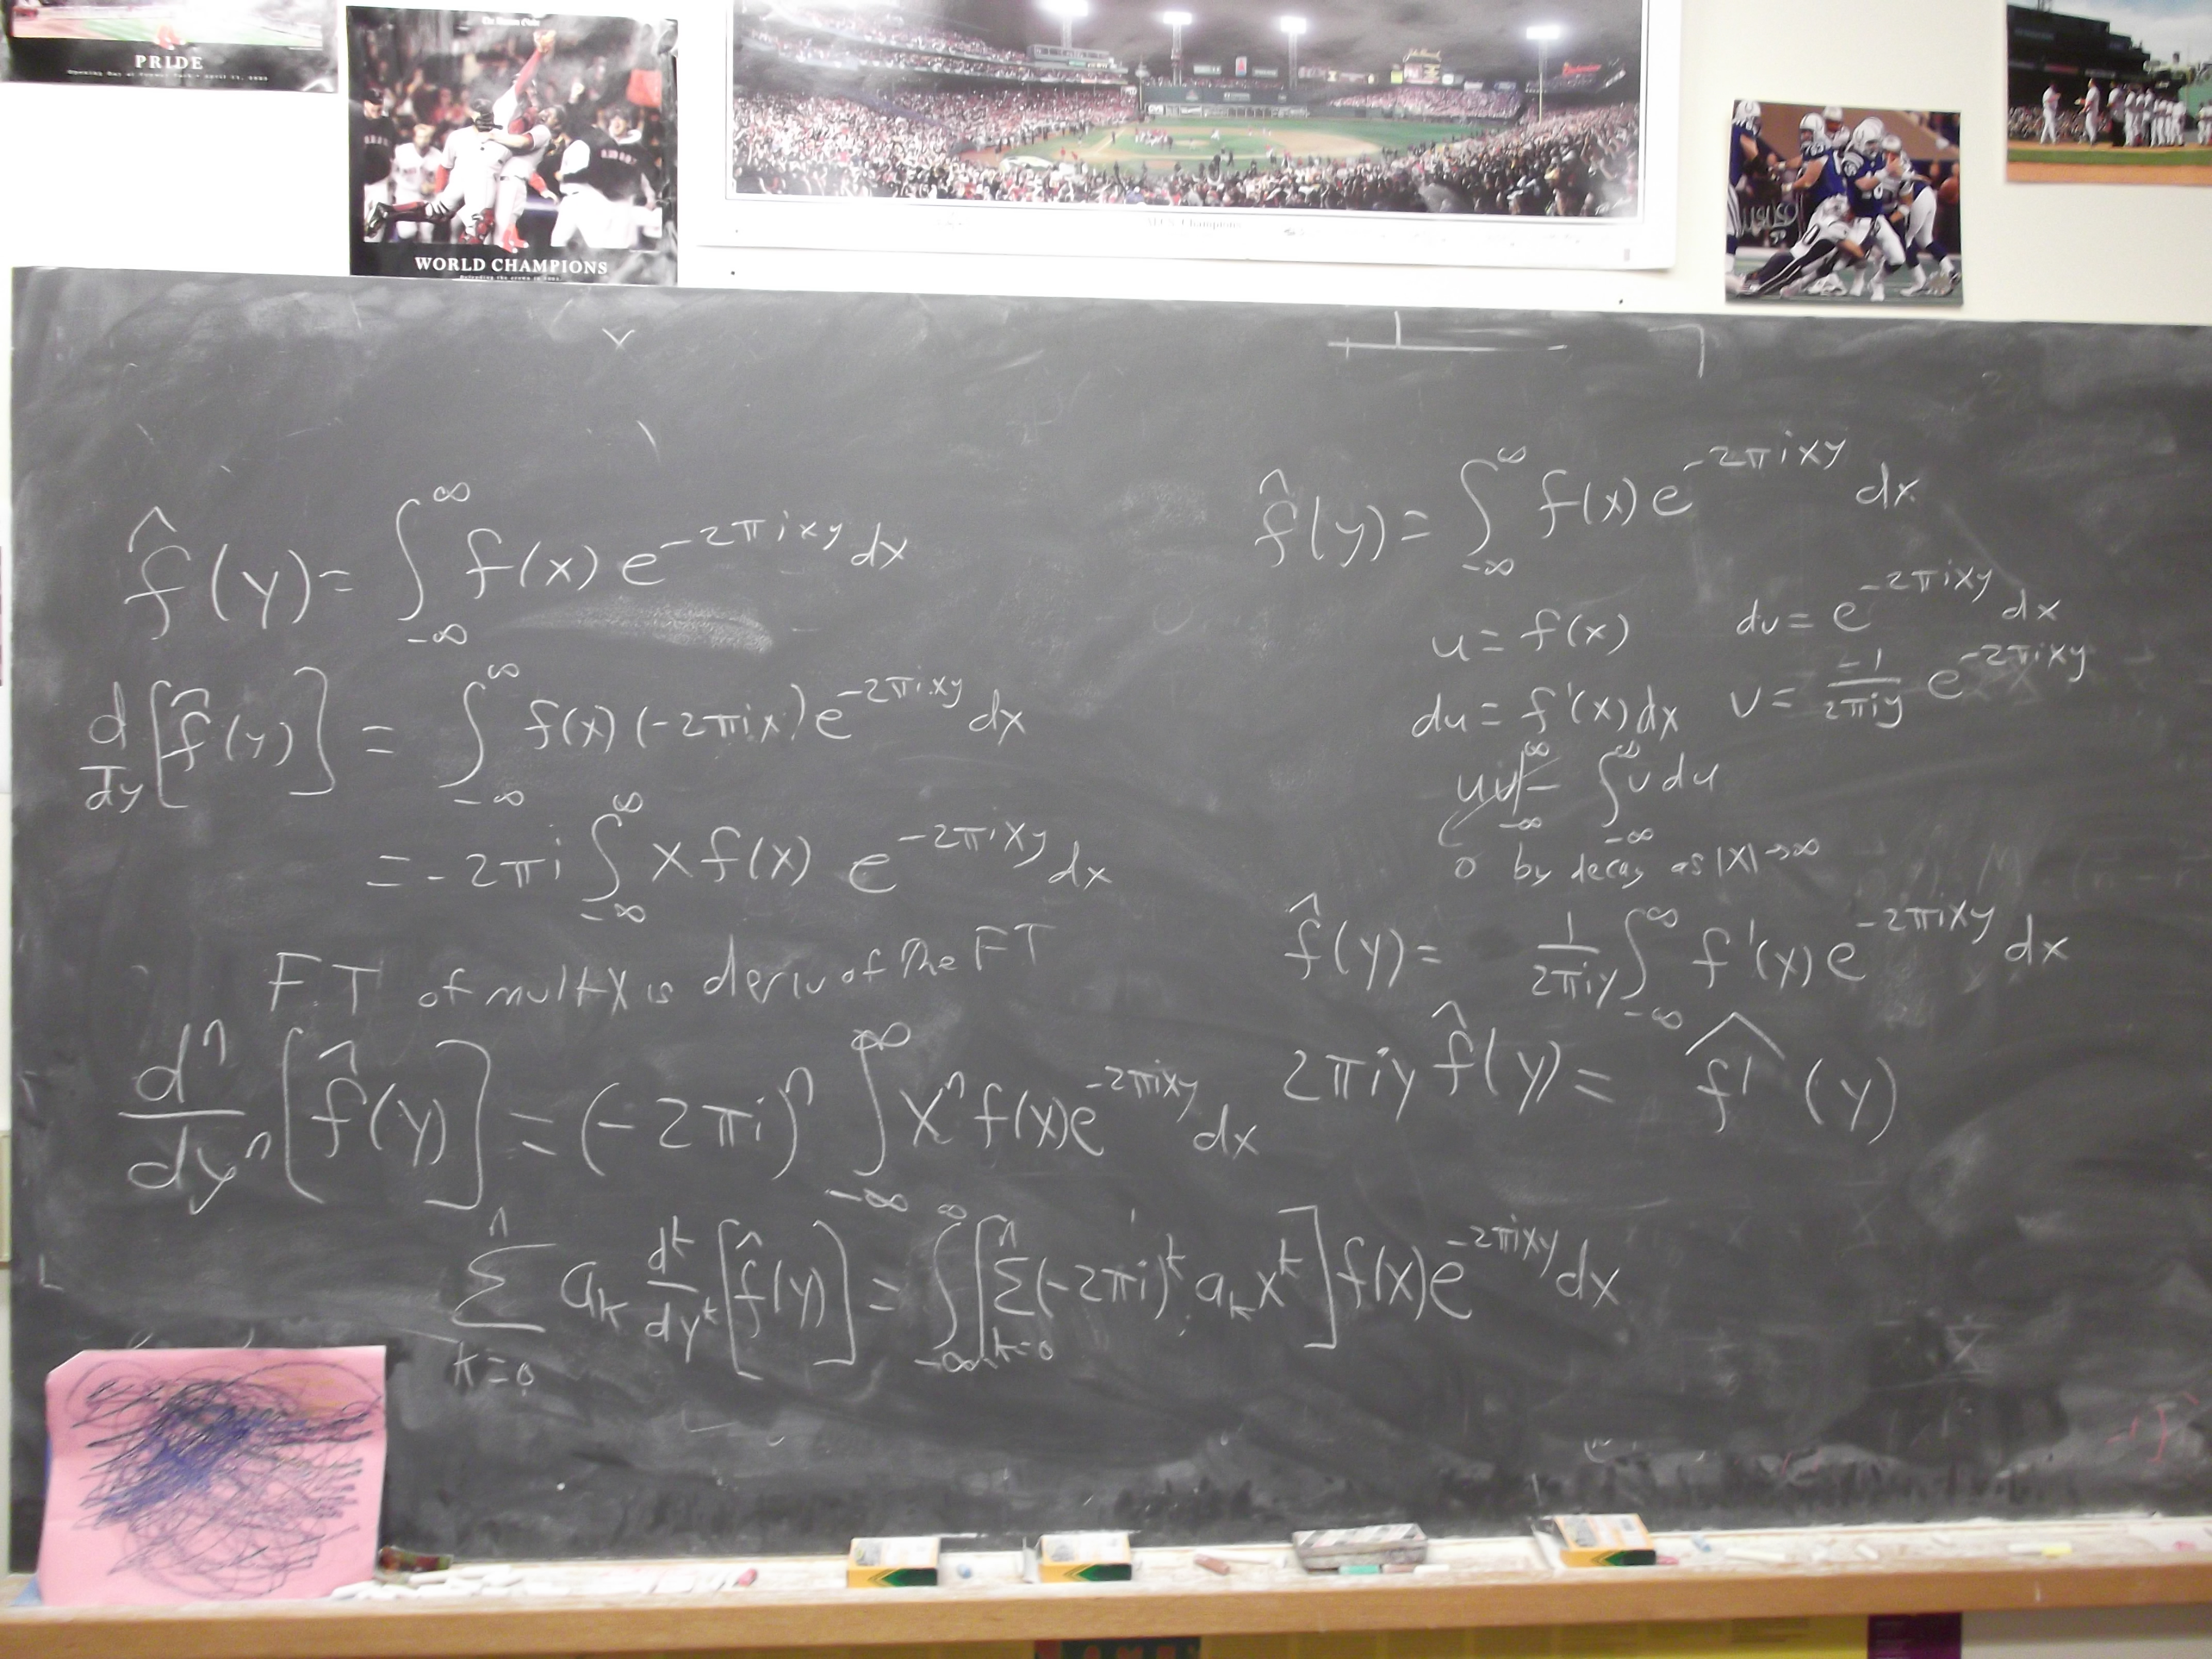 The Boston Globe
PRIDE
WORLD CHAMPIONS
Champions
f̂(y) = ∫_{-∞}^{∞} f(x) e^{-2πixy} dx
d/dy [f̂(y)] = ∫_{-∞}^{∞} f(x) (-2πix) e^{-2πixy} dx
= -2πi ∫_{-∞}^{∞} x f(x) e^{-2πixy} dx
FT of mult x is deriv of the FT
d^n/dy^n [f̂(y)] = (-2πi)^n ∫_{-∞}^{∞} x^n f(x) e^{-2πixy} dx
∑_{k=0}^{n} a_k d^k/dy^k [f̂(y)] = ∫_{-∞}^{∞} [∑_{k=0}^{n} (-2πi)^k a_k x^k] f(x) e^{-2πixy} dx
f̂(y) = ∫_{-∞}^{∞} f(x) e^{-2πixy} dx
u = f(x) dv = e^{-2πixy} dx
du = f'(x) dx v = -1/(2πiy) e^{-2πixy}
uv|_{-∞}^{∞} - ∫_{-∞}^{∞} v du
0 by decay as |x|→∞
f̂(y) = 1/(2πiy) ∫_{-∞}^{∞} f'(x) e^{-2πixy} dx
2πiy f̂(y) = \widehat{f'}(y)